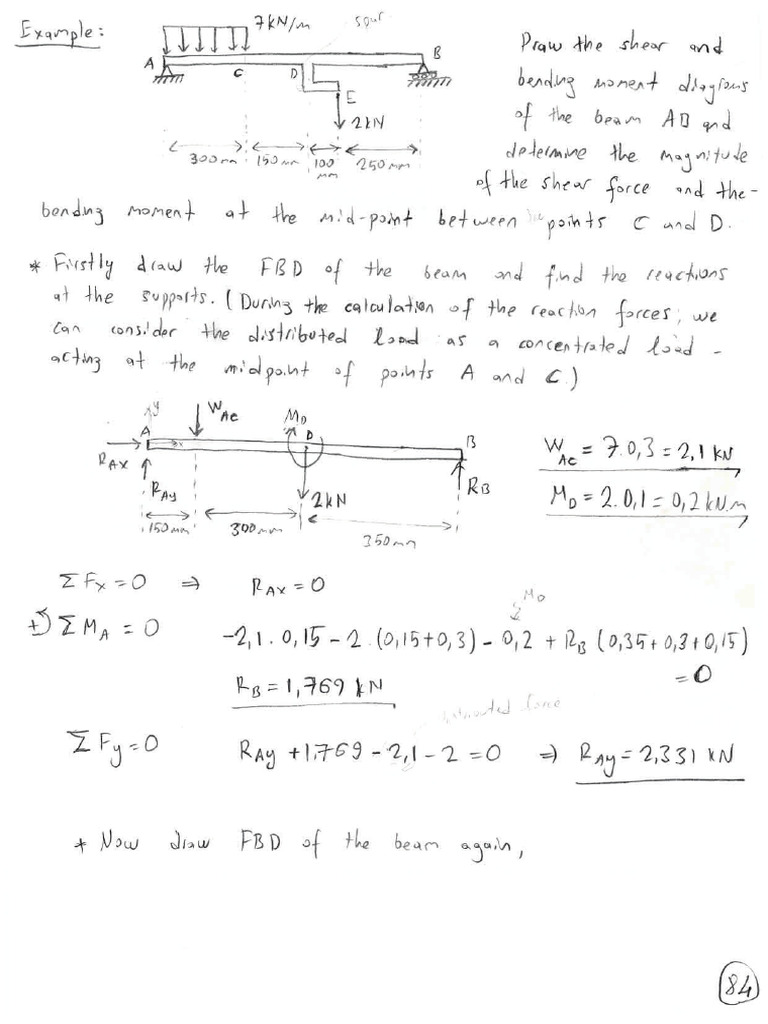 Example:
7kN/m
spur
A
C
D
B
E
2kN
300mm
150mm
100
mm
250mm
Draw the shear and
bending moment diagrams
of the beam AB and
determine the magnitude
of the shear force and the-
bending moment at the mid-point between the points C and D.
* Firstly draw the FBD of the beam and find the reactions
at the supports. (During the calculation of the reaction forces, we
can consider the distributed load as a concentrated load -
acting at the midpoint of points A and C.)
y
A
x
WAC
MD
D
B
RAX
RAy
2kN
RB
150mm
300mm
350mm
WAC = 7.0,3 = 2,1 kN
MD = 2.0,1 = 0,2 kN.m
ΣFx = 0 ⇒ RAX = 0
MD
+↺ ΣMA = 0 -2,1.0,15 - 2.(0,15+0,3) - 0,2 + RB (0,35+0,3+0,15)
= 0
RB = 1,769 kN
force
ΣFy = 0 RAy + 1,769 - 2,1 - 2 = 0 ⇒ RAy = 2,331 kN
* Now draw FBD of the beam again,
84